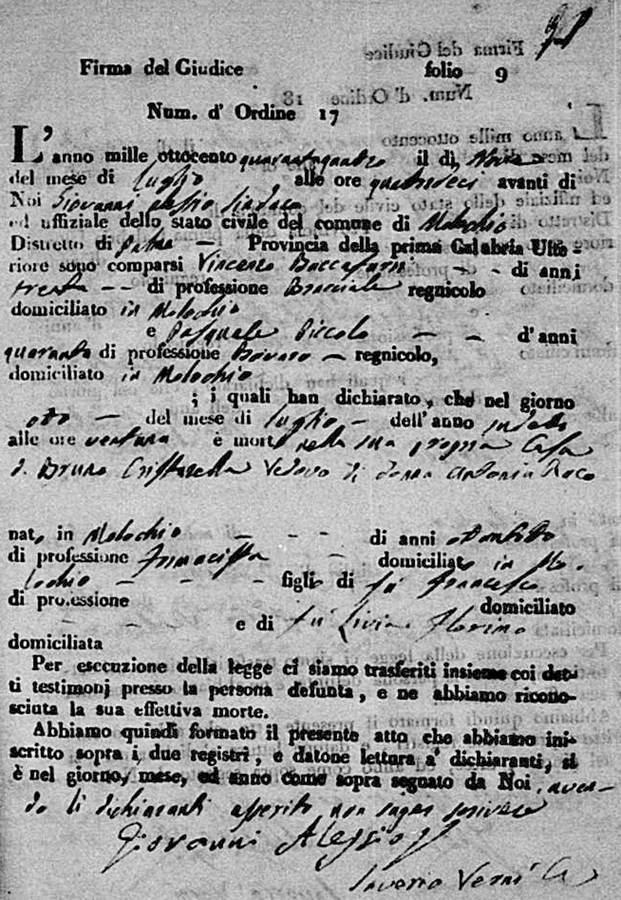 Firma del Giudice folio 9
Num. d' Ordine 17
L'anno mille ottocento quarantaquattro il di Nove
del mese di Luglio alle ore quattordeci avanti di
Noi Giovanni Alessio Sindaco
ed uffiziale dello stato civile del comune di Molochio
Distretto di Palme — Provincia della prima Calabria Ulte-
riore sono comparsi Vincenzo — - di anni
trenta - - di professione Bracciale regnicolo
domiciliato in Molochio
e Pasquale Piccolo — - d'anni
quaranta di professione Bovaro — regnicolo,
domiciliato in Molochio
; i quali han dichiarato, che nel giorno
otto — del mese di Luglio — dell'anno
alle ore ventuna è morto nella sua propria Casa
D. Bruno Vedovo di Donna Antonia
nato in Molochio - - - di anni
di professione — domiciliato in Mo-
lochio — - - figlio di fù Francesco
di professione domiciliato
e di fù Livia Florimo
domiciliata
Per esecuzione della legge ci siamo trasferiti insieme coi det-
ti testimonj presso la persona defunta, e ne abbiamo ricono-
sciuta la sua effettiva morte.
Abbiamo quindi formato il presente atto che abbiamo ini-
scritto sopra i due registri, e datone lettura a' dichiaranti, si
è nel giorno, mese, ed anno come sopra segnato da Noi, aven-
do li dichiaranti asserito non saper scrivere
Giovanni Alessio
Saverio